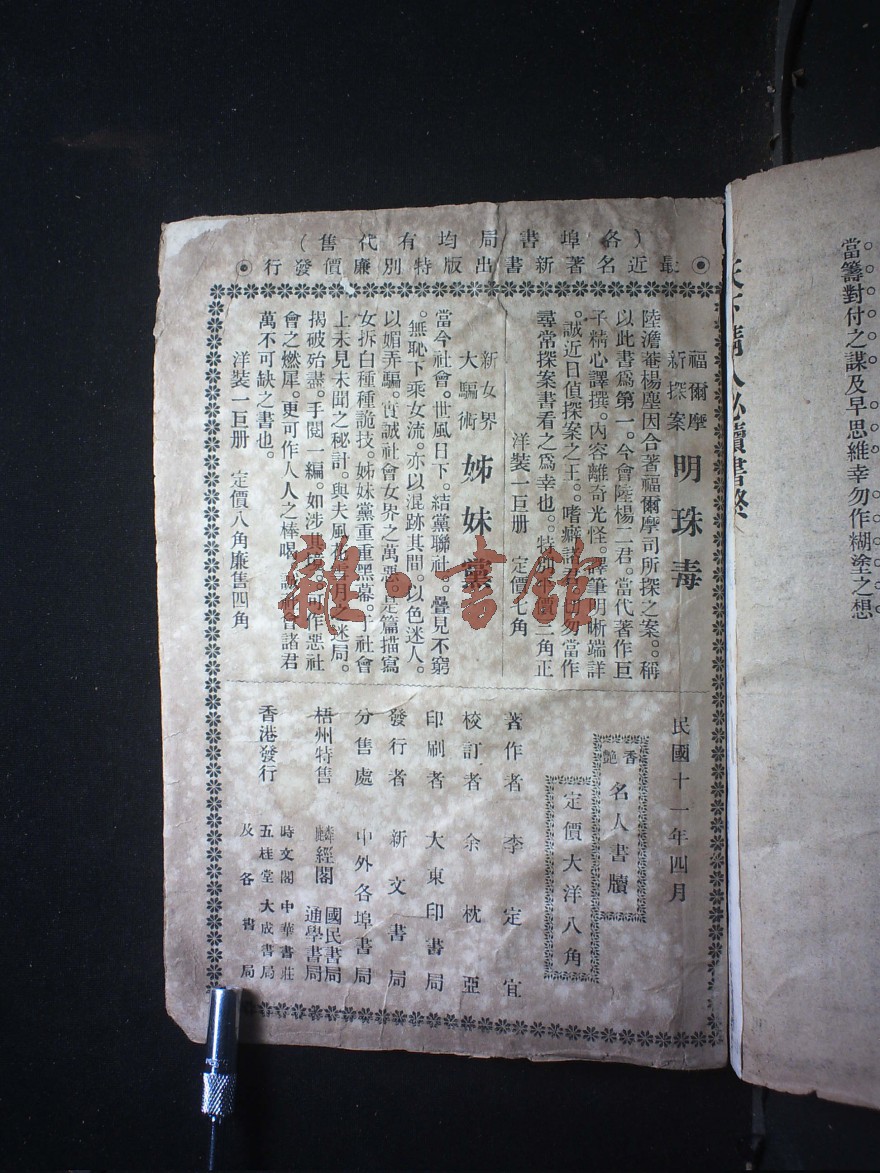 當籌對付之謀及早思維幸勿作糊塗之想
天下情人必讀書終
(各埠書局均有代售)
最近名著新書出版特別廉價發行
福爾摩
新探案
明珠毒
陸澹菴楊塵因合著福爾摩司所探之案。。稱
以此書爲第一。今會陸楊二君。當代著作巨
子精心譯撰。內容離奇光怪。譯筆明晰端詳
。誠近日偵探案之王。。嗜癖諸君。切勿當作
尋常探案書看之爲幸也。。特別廉價三角正
洋裝一巨册 定價七角
新女界
大騙術
姊妹黨
當今社會。世風日下。結黨聯社。疊見不窮
。無恥下乘女流。亦以混跡其間。以色迷人。
以媚弄騙。實誠社會女界之萬惡。是篇描寫
女拆白種種詭技。姊妹黨重重黑幕。于社會
上未見未聞之秘計。與夫風花雪月之迷局。
揭破殆盡。手閱一編。如涉其境。可作惡社
會之燃犀。更可作人人之棒喝。誠閱者諸君
萬不可缺之書也。
洋裝一巨册 定價八角廉售四角
民國十一年四月
香艷
名人書牘
定價大洋八角
著作者 李定宜
校訂者 余枕亞
印刷者 大東印書局
發行者 新文書局
分售處 中外各埠書局
梧州特售 麟經閣 國民書局 通學書局
香港發行 時文閣 中華書莊
五桂堂 大成書局
及各書局
雜·書館